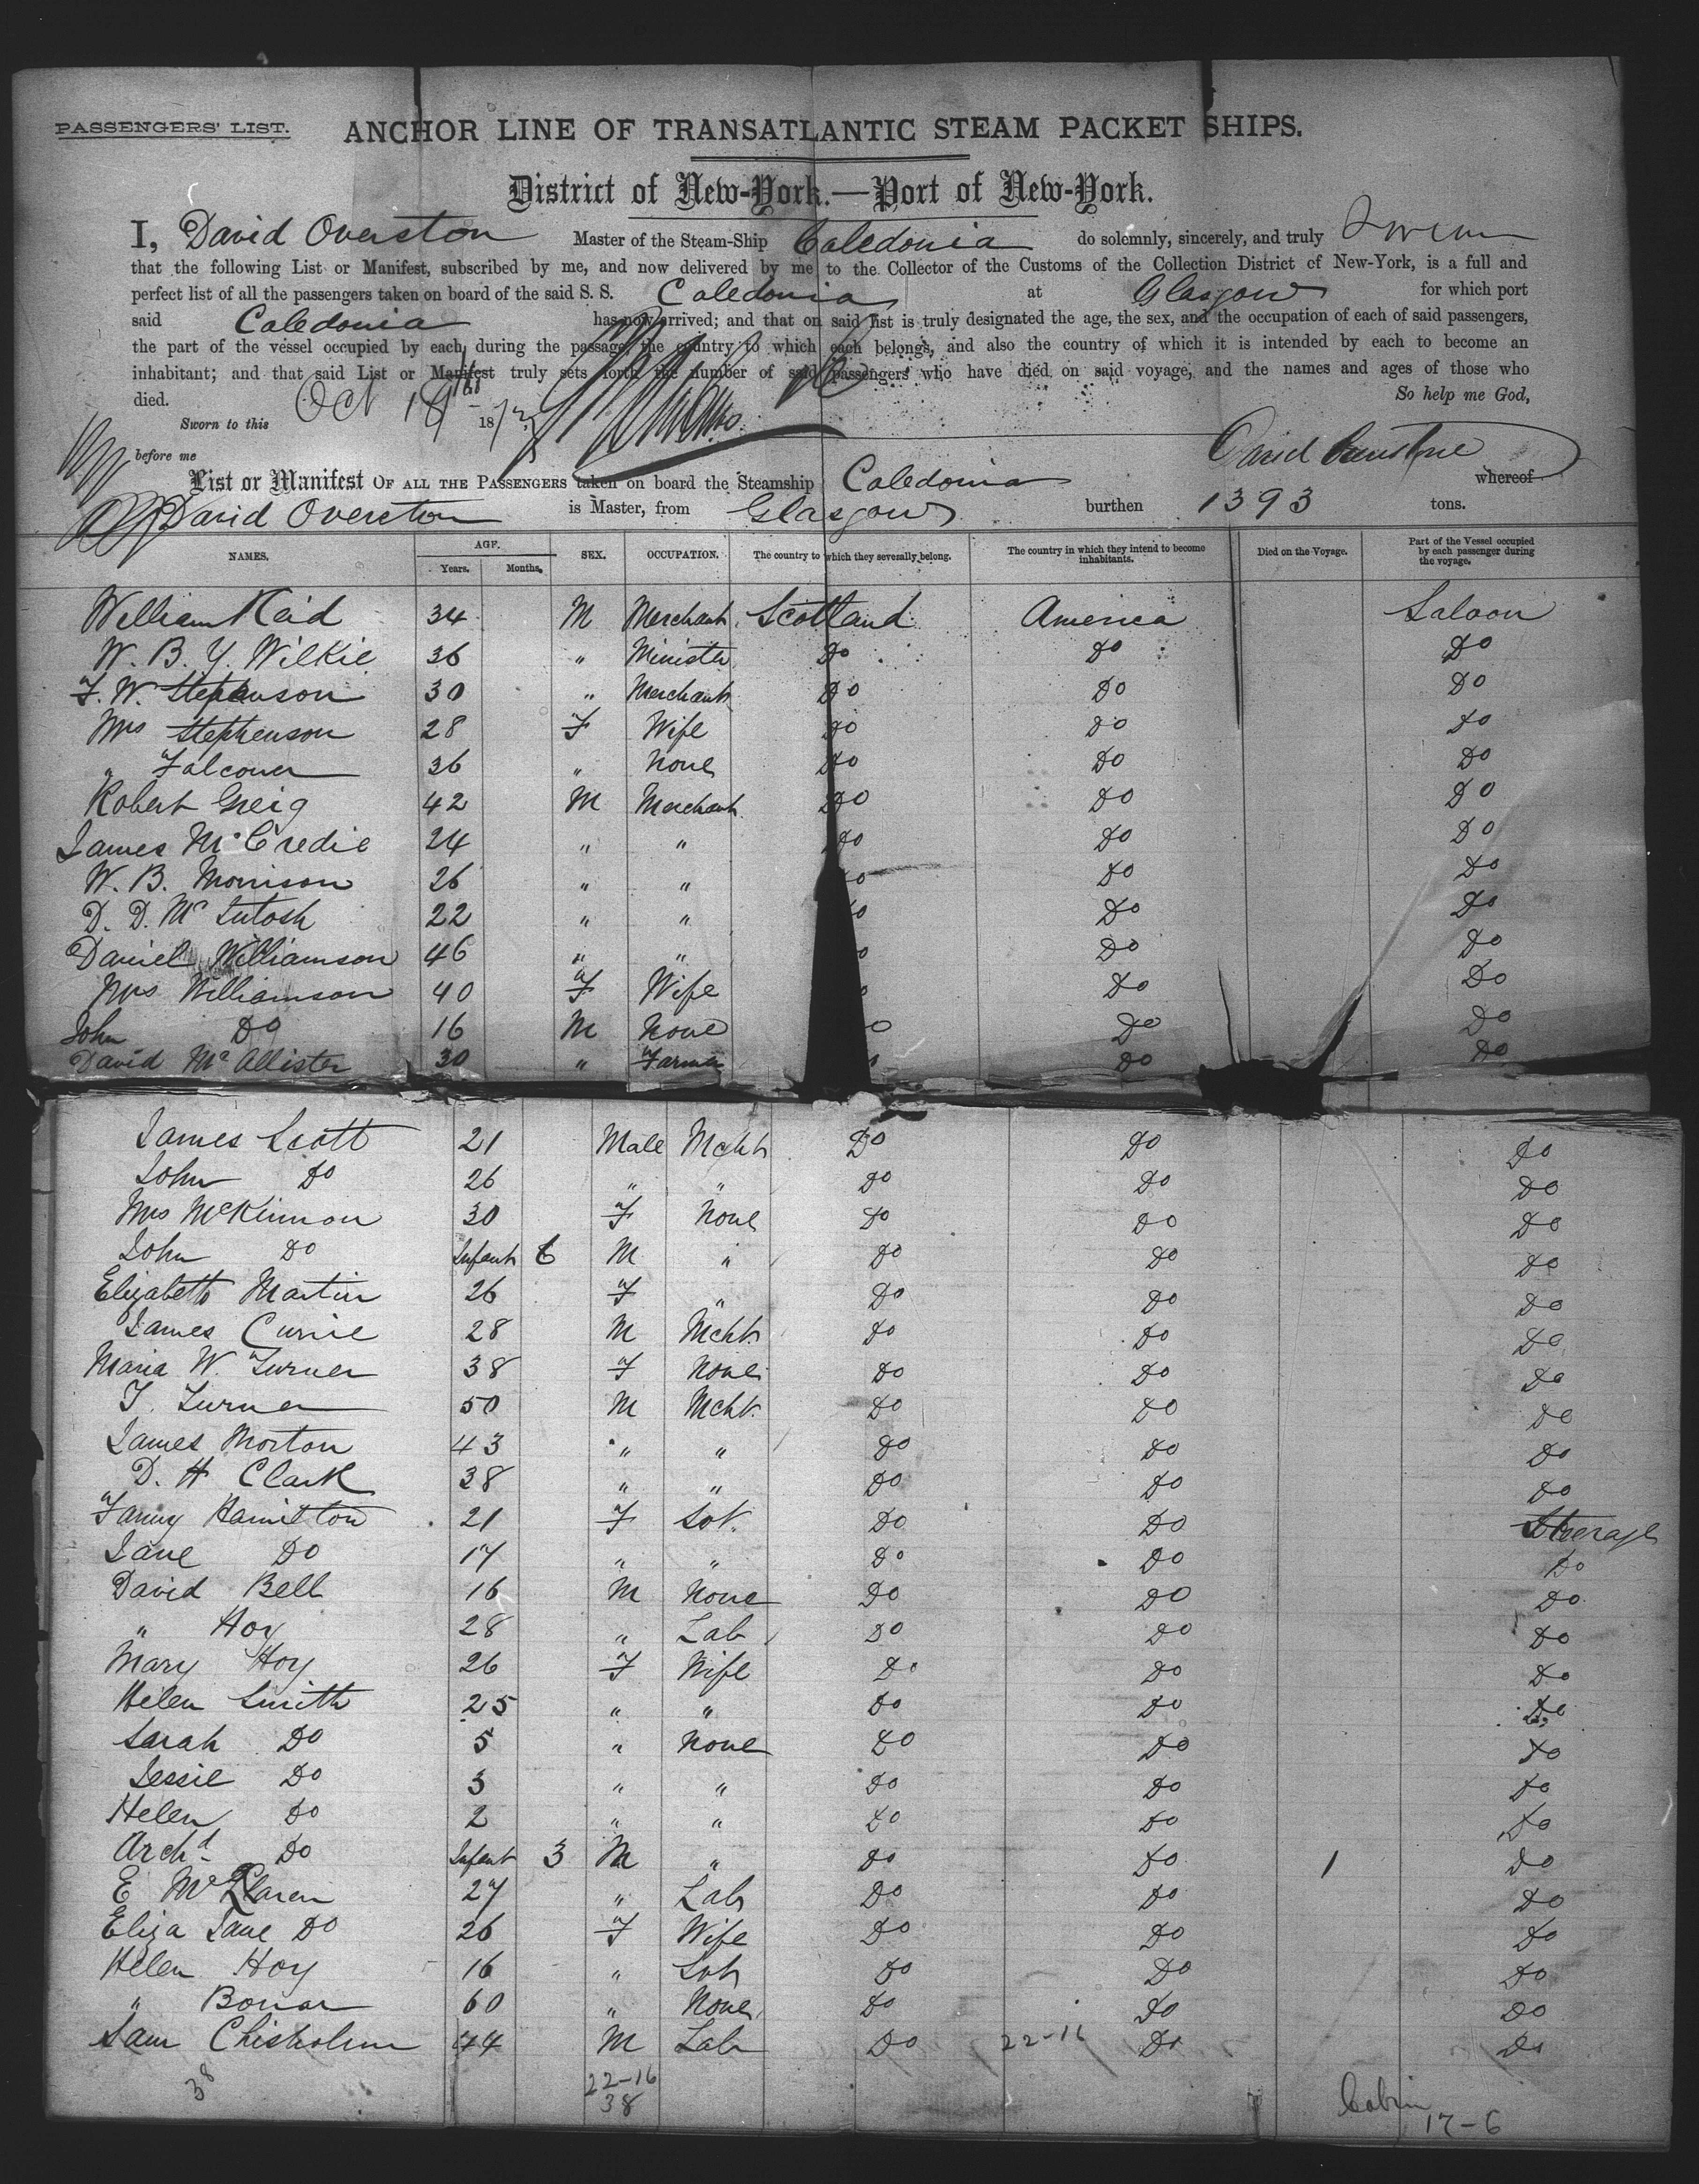 PASSENGERS' LIST. ANCHOR LINE OF TRANSATLANTIC STEAM PACKET SHIPS.
District of New-York.—Port of New-York.
I, David Overston Master of the Steam-Ship Caledonia do solemnly, sincerely, and truly Swear
that the following List or Manifest, subscribed by me, and now delivered by me to the Collector of the Customs of the Collection District of New-York, is a full and
perfect list of all the passengers taken on board of the said S. S. Caledonia at Glasgow for which port
said Caledonia has now arrived; and that on said list is truly designated the age, the sex, and the occupation of each of said passengers,
the part of the vessel occupied by each during the passage, the country to which each belongs, and also the country of which it is intended by each to become an
inhabitant; and that said List or Manifest truly sets forth the number of said passengers who have died on said voyage, and the names and ages of those who
died. So help me God,
Sworn to this Oct 18th 1873
before me David
List or Manifest OF ALL THE PASSENGERS taken on board the Steamship Caledonia whereof
David Overston is Master, from Glasgow burthen 1393 tons.
NAMES. AGE. Years. Months. SEX. OCCUPATION. The country to which they severally belong. The country in which they intend to become inhabitants. Died on the Voyage. Part of the Vessel occupied by each passenger during the voyage.
William Kaid 34 M Merchant Scotland America Saloon
W. B. Y. Wilkie 36 " Minister Do Do Do
F. W. Stephenson 30 " Merchant Do Do Do
Mrs Stephenson 28 F Wife Do Do Do
" Falconer 36 " None Do Do Do
Robert Greig 42 M Merchant Do Do Do
James McCredie 24 " " Do Do Do
W. B. Morrison 26 " " Do Do Do
D. D. McIntosh 22 " " Do Do Do
Daniel Williamson 46 " " Do Do
Mrs Williamson 40 F Wife Do Do
John Do 16 M None Do Do
David McAllister 30 " Farmer Do Do
James Scott 21 Male Mcht Do Do Do
John Do 26 " " Do Do Do
Mrs McKinnon 30 F None Do Do Do
John Do Infant 6 M " Do Do Do
Elizabeth Martin 26 F " Do Do Do
James Currie 28 M Mcht Do Do Do
Maria W. Turner 38 F None Do Do Do
T. Turner 50 M Mcht. Do Do Do
James Morton 43 " " Do Do Do
D. H Clark 38 " " Do Do Do
Fanny Hamilton 21 F Sot. Do Do Steerage
Jane Do 17 " " Do Do Do
David Bell 16 M None Do Do Do
" Hoy 28 " Lab Do Do Do
Mary Hoy 26 F Wife Do Do Do
Helen Smith 25 " " Do Do Do
Sarah Do 5 " None Do Do Do
Jessie Do 3 " " Do Do Do
Helen Do 2 " " Do Do Do
Archd Do Infant 3 M " Do Do 1 Do
E McLaren 27 " Lab Do Do Do
Eliza Jane Do 26 F Wife Do Do Do
Helen Hoy 16 " Sot Do Do Do
" Bonar 60 " None Do Do Do
Sam Chisholm 44 M Lab Do 22-16 Do Do
38 22-16
38
Cabin
17-6